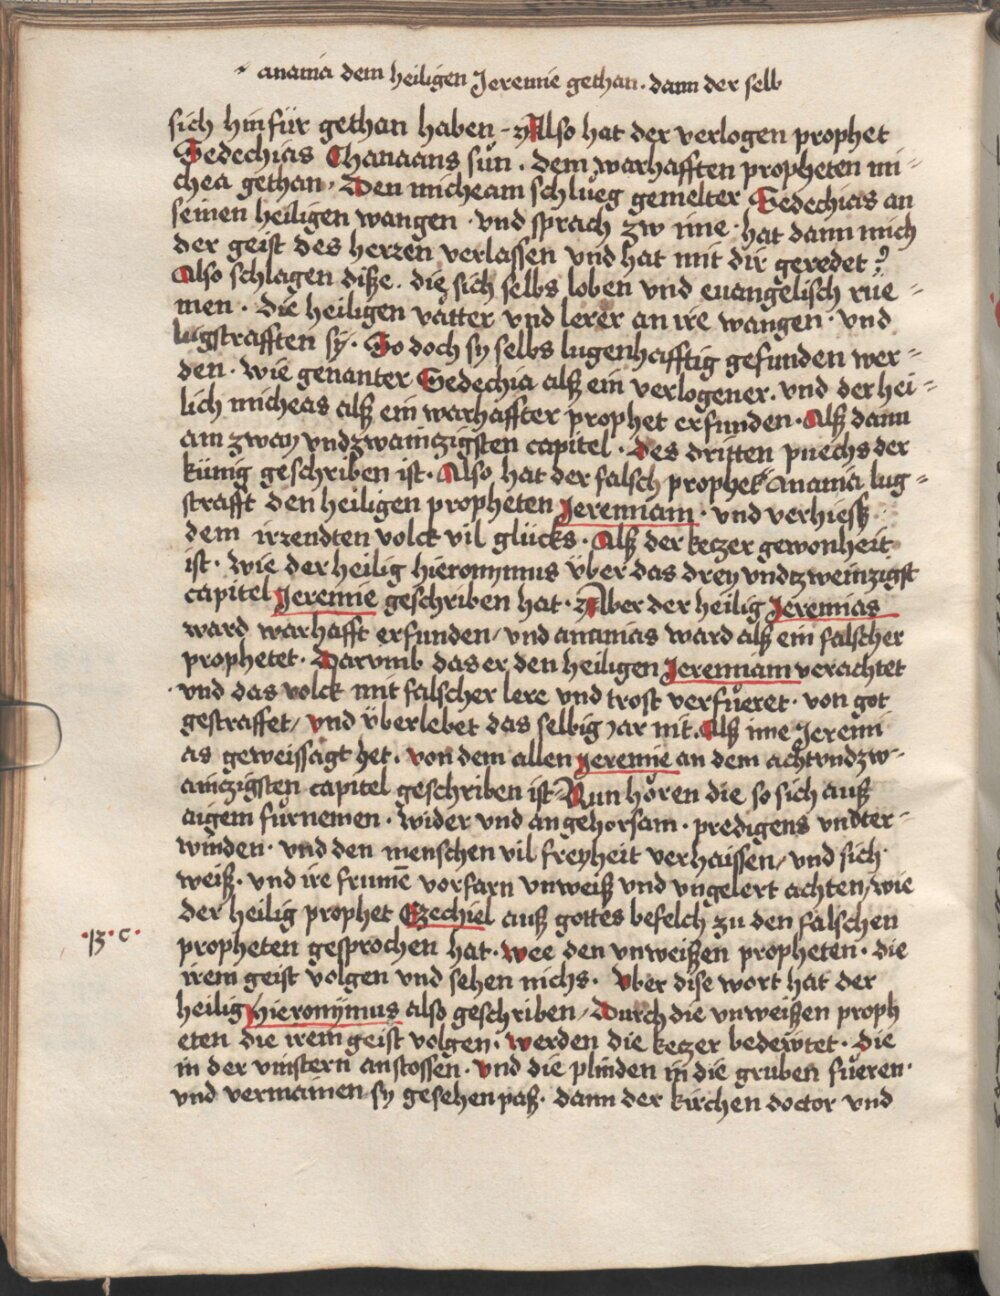 anania dem heiligen Jeremie gethan · dann der selb
sich hinfür gethan haben - Also hat der verlogen prophet
Sedechias Chanaans sůn · dem warhafften propheten mi=
chea gethan · Den micheam schlůeg gemelter Sedechias an
seinen heiligen wangen · vnd sprach zw ime · hat dann mich
der geist des herzen verlassen vnd hat mit dir geredet ?
Also schlagen diße · die sich selbs loben vnd euangelisch rüe=
men · die heiligen vätter vnd lerer an ire wangen · vnd
lugstrafften sy · So doch sy selbs lugenhafftig gefunden wer=
den · wie genanter Sedechia alß ein verlogener · vnd der hei=
lich micheas alß ein warhaffter prophet erfunden · Alß dann
am zway vndzwainczigsten capitel · des dritten puechs der
künig geschriben ist · Also hat der falsch prophet anania lug=
strafft den heiligen propheten Jeremiam · vnd verhiesß
dem irzendten volck vil glücks · Alß der keczer gewonheit
ist · wie der heilig hieronymus über das drey vndtzweinzigst
capitel Jeremie geschriben hat · Aber der heilig Jeremias
ward warhafft erfunden / vnd ananias ward alß ein falscher
prophetet · Darvmb das er den heiligen Jeremiam verachtet
· vnd das volck mit falscher lere vnd trost verfůeret · von got
gestraffet / vnd überlebet das selbig jar nit · Alß ime Jeremi
as geweissagt het · von dem allen Jeremie an dem achtvndzw-
ainczigsten capitel geschriben ist · Nun hören die so sich auß
aigem fürnemen · wider vnd an gehorsam · predigens vndter-
winden · vnd den menschen vil freyheit verhaissen / vnd sich
weiß · vnd ire frumē vorfarn vnweiß vnd vngelert achten / wie
der heilig prophet Ezechiel auß gottes befelch zu den falschen
·13·c·
propheten gesprochen hat · wee den vnweißen propheten · die
irem geist volgen vnd sehen nichs · Vber dise wort hat der
heilig Hieronymus also geschriben / Durch die vnweißen proph
eten die irem geist volgen · werden die keczer bedewtet · die
in der vinstern anstossen · vnd die plinden in die gruben fůeren ·
vnd vermainen sy gesehen paß · dann der kirchen doctor vnd